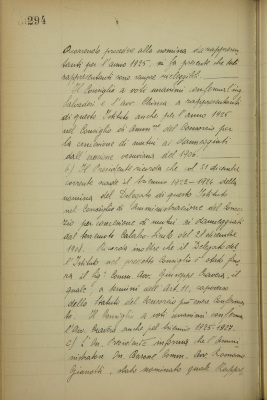 294
Occorrendo procedere alla nomina dei rappresen-
tanti per l'anno 1925, si fa presente che detti
rappresentanti sono sempre rieleggibili.
Il Consiglio a voti unanimi conferma l'ing.
e l'avv. a rappresentanti
di questo Istituto anche per l'anno 1925
nel Consiglio di Amm.ne del Consorzio per
la concessione di mutui ai danneggiati
dall'eruzione vesuviana del 1906.
b) Il Presidente ricorda che col 31 dicembre
corrente scade il triennio 1922-1924 della
nomina del Delegato di questo Istituto
nel Consiglio di Amministrazione del Conso-
rzio per concessione di mutui ai danneggiati
dal terremoto Calabro Siculo del 28 dicembre
1908. Ricorda inoltre che il Delegato del-
l'Istituto nel predetto Consiglio è stato fino-
ra il Gr. Comm. Avv. Giuseppe il
quale, a termini dell'Art. 11,
dello Statuto del Consorzio può essere conferma-
to. Il Consiglio a voti unanimi conferma
l'Avv. anche pel triennio 1925-1927.
c) L'On. Presidente informa che l'Ammi-
nistratore On. Comm. Avv. Romano
è stato nominato quale Rappre-